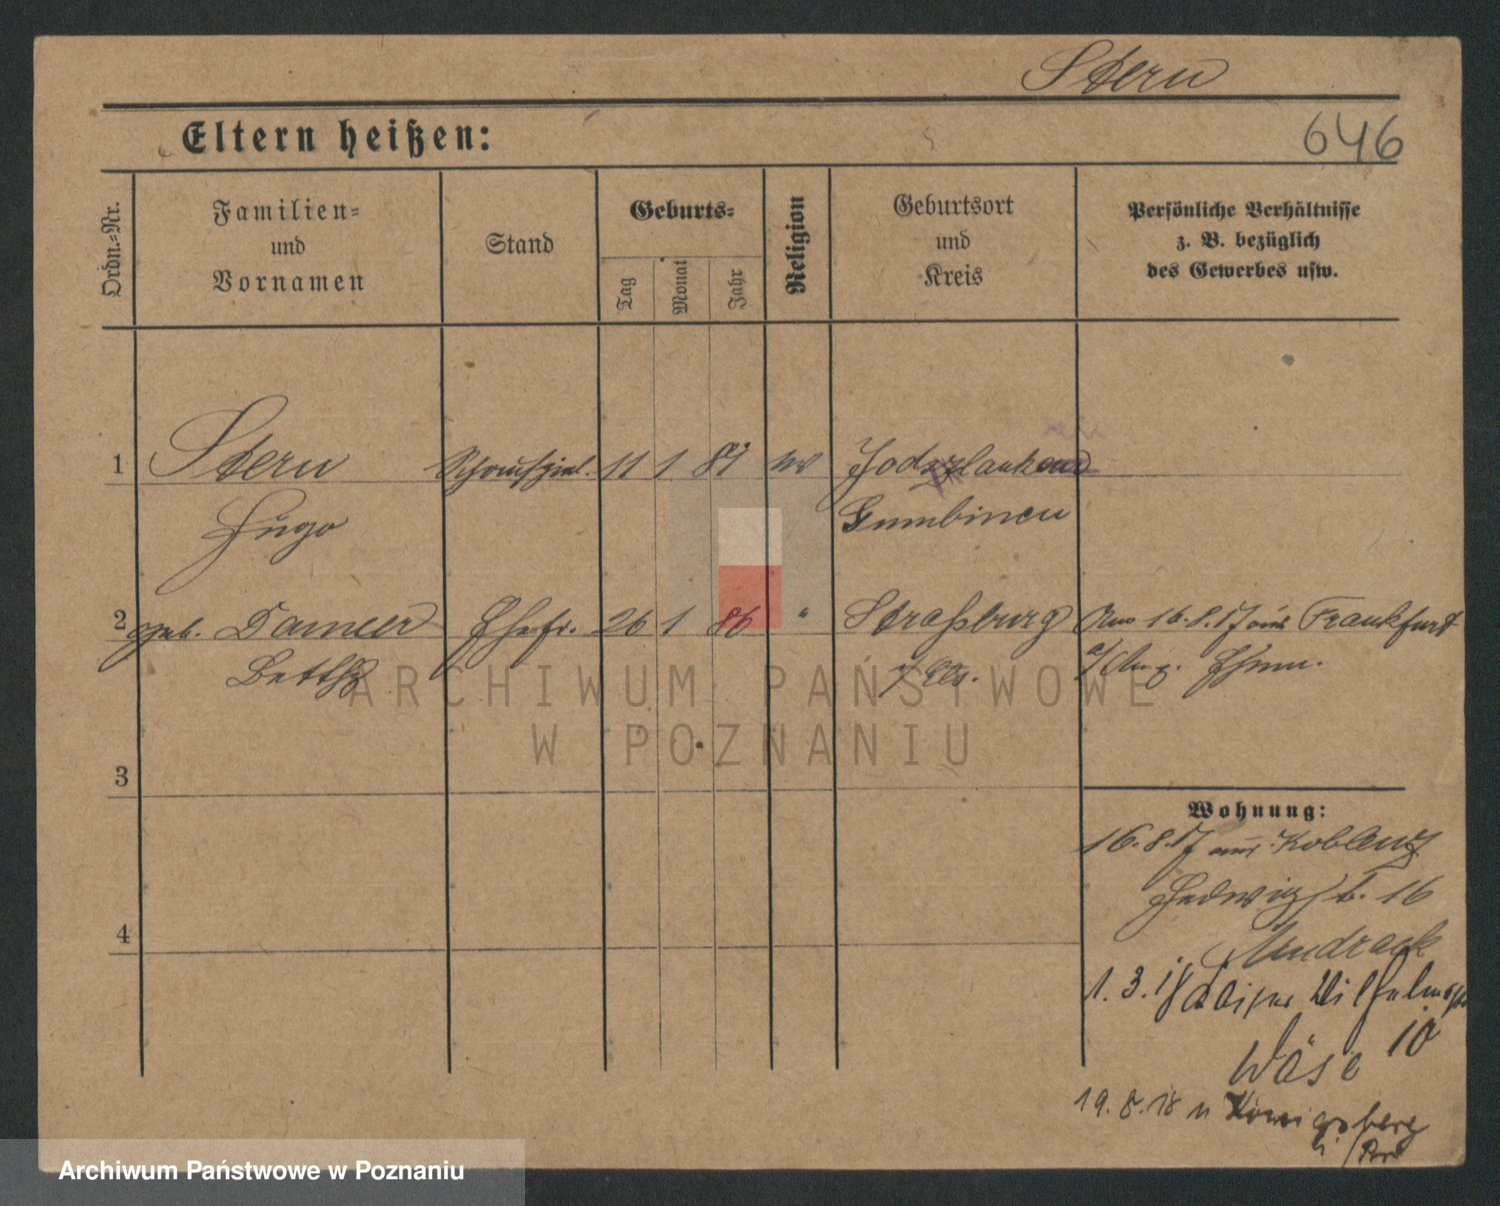 Stern
Eltern heißen:
646
Ordn.=Nr.
Familien=
und
Vornamen
Stand
Geburts=
Tag
Monat
Jahr
Religion
Geburtsort
und
Kreis
Persönliche Verhältnisse
z. B. bezüglich
des Gewerbes usw.
1
Stern
Schauspiel. 11 1 81 ev
Jodszlauken
Hugo
Gumbinen
2
geb.
Ehefr. 26 1 86 "
Straßburg
16.8.17 aus Frankfurt
i/Els.
3
Wohnung:
16.8.17 aus Koblenz
Hedwigst. 16
4
Mudrack
1.3.18 Kaiser Wilhelmstr
10
Wäse
19.8.18 n Königsberg
i/Pr
ARCHIWUM PAŃSTWOWE
W POZNANIU
Archiwum Państwowe w Poznaniu